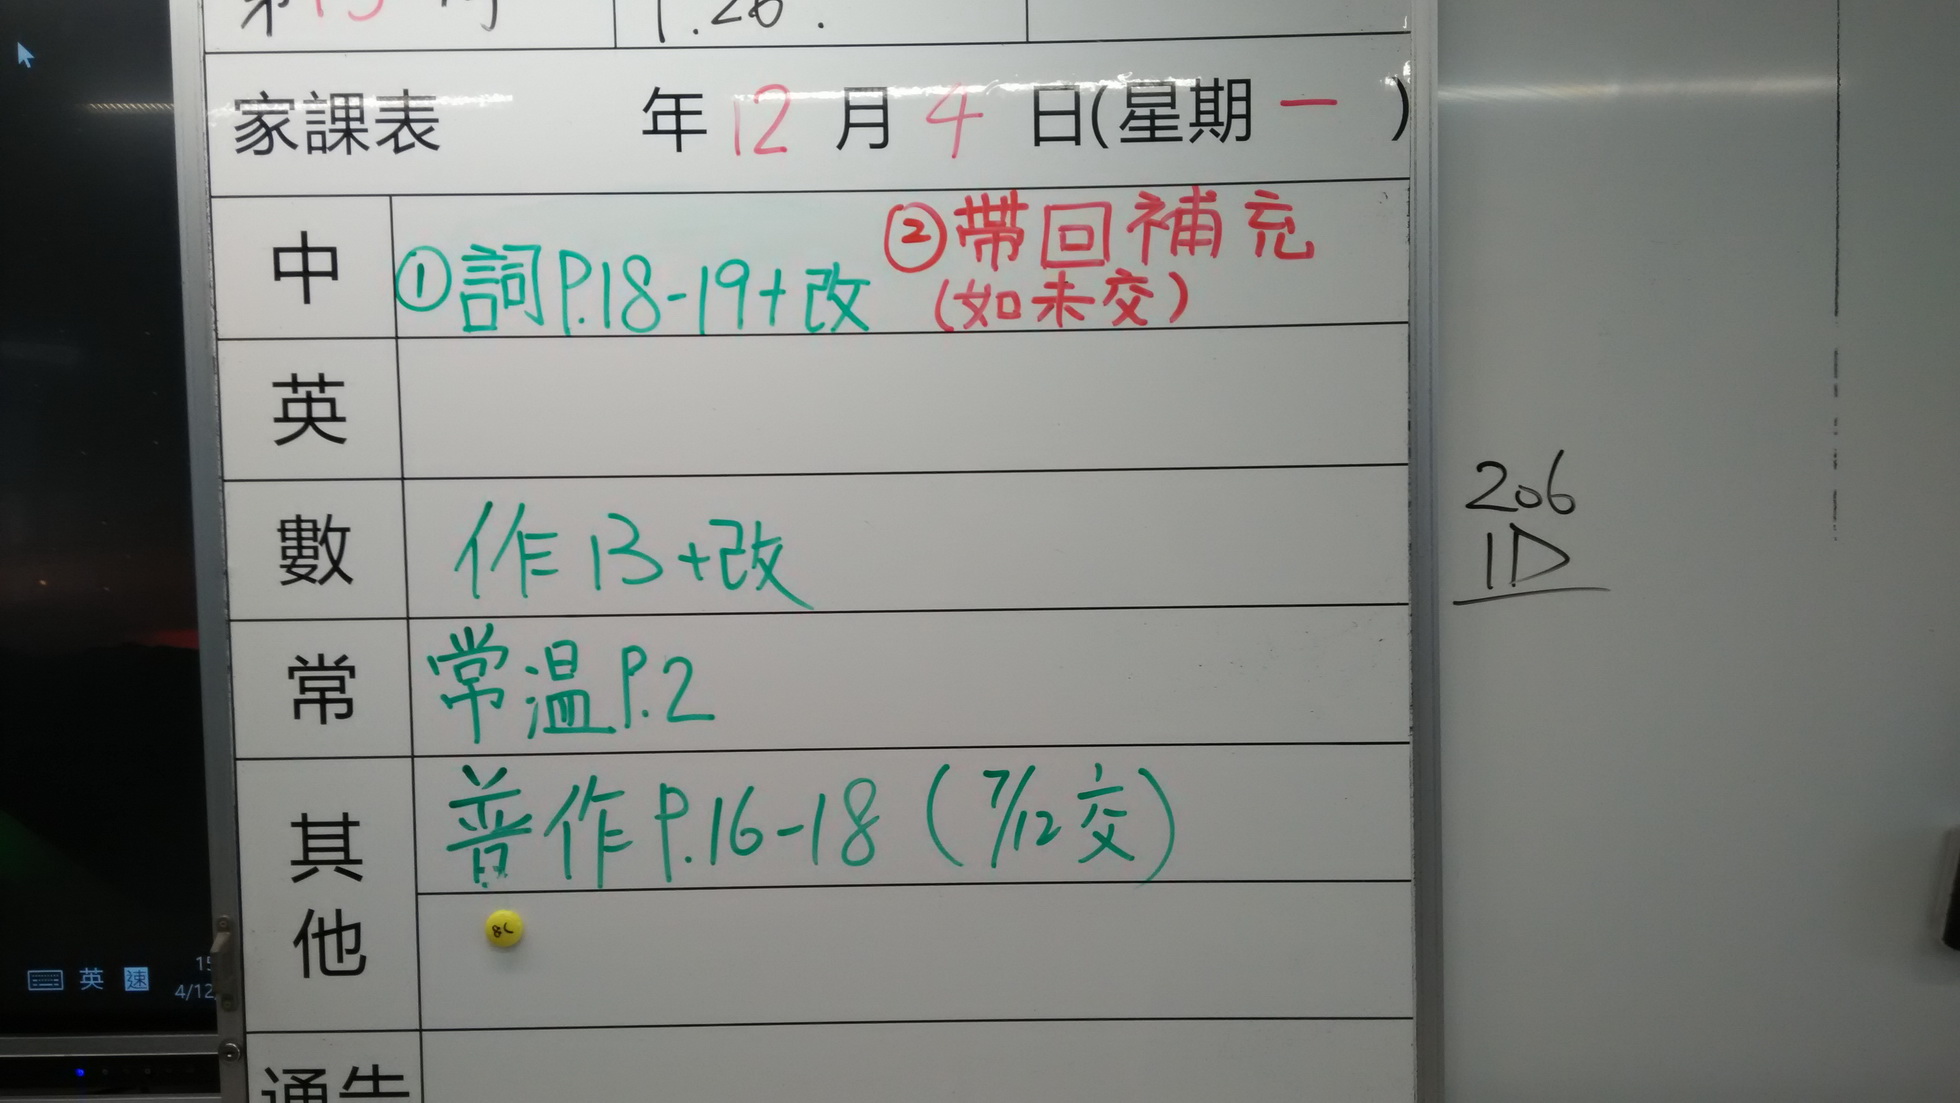 P.26.
家課表 年12月4日(星期一)
中 ①詞P.18-19+改 ②帶回補充
(如未交)
英
數 作13+改
常 常溫P.2
其他 普作P.16-18 (7/12交)
通告
206
1D
英 速
4/12